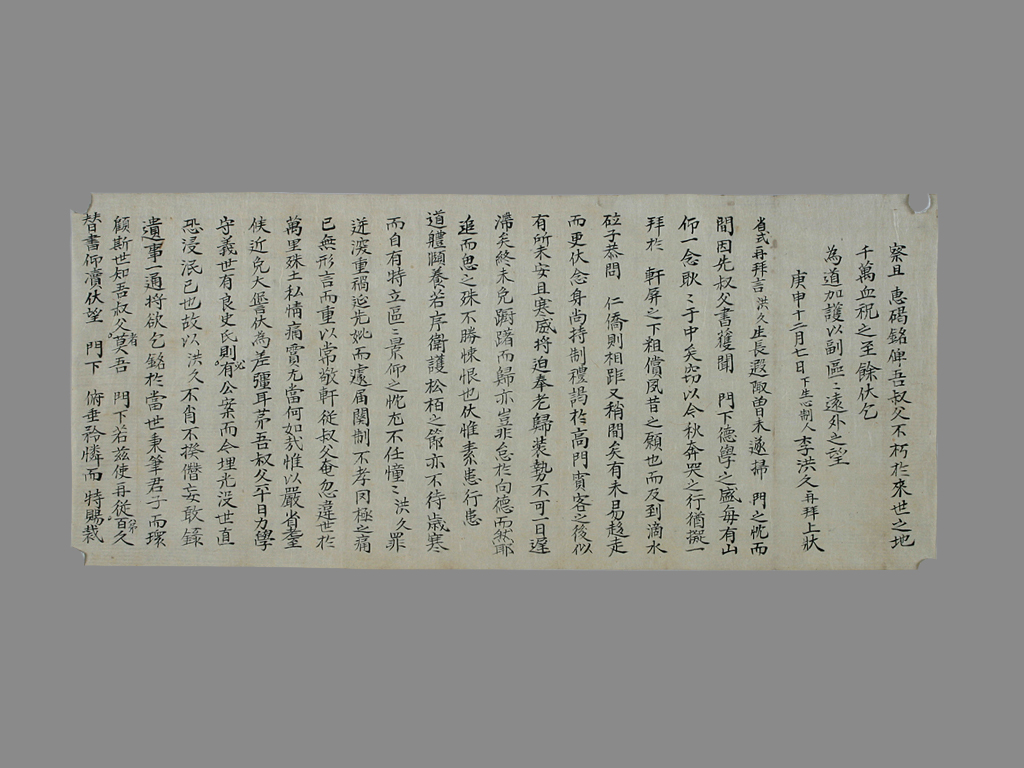 省式再拜言 洪久生長遐陬曾未遂掃 門之忱而
間因先叔父書獲聞 門下德學之盛每有山
仰一念耿〻于中矣窃以今秋奔哭之行猶擬一
拜於 軒屏之下粗償夙昔之願也而及到滴水
砬子恭問 仁僑則相距又稍間矣有未易趍走
而更伏念身尚持制禮謁於高門賓客之後似
有所未安且寒威將迫奉老歸装勢不可一日遲
滯矣終未免躕躇而歸亦豈非怠於向德而然耶
追而思之殊不勝悚恨也伏惟素患行患
道軆頤養若序衛護松栢之節亦不待歲寒
而自有特立區〻景仰之忱尤不任憧〻洪久罪
逆深重禍迨先妣而遽届関制不孝罔極之痛
已無形言而重以常敬軒従叔父奄忽違世於
萬里殊土私情痛霣尤當何如哉惟以嚴省耋
候近免大𠎝伏為差彊耳苐吾叔父平日力學
守義世有良史氏則必有公案而今埋光没世直
恐浸泯已也故以洪久不肖不揆僭妄敢錄
遺事一通將欲乞銘於當世秉筆君子而環
顧斯世知吾叔父者莫吾 門下若玆使再従弟百久
替書仰瀆伏望 門下 俯垂矜憐而 特賜裁
察且 惠碣銘俾吾叔父不朽於來世之地
千萬血祝之至餘伏乞
為道加護以副區〻遠外之望
庚申十二月七日下生心制人李洪久再拜上狀